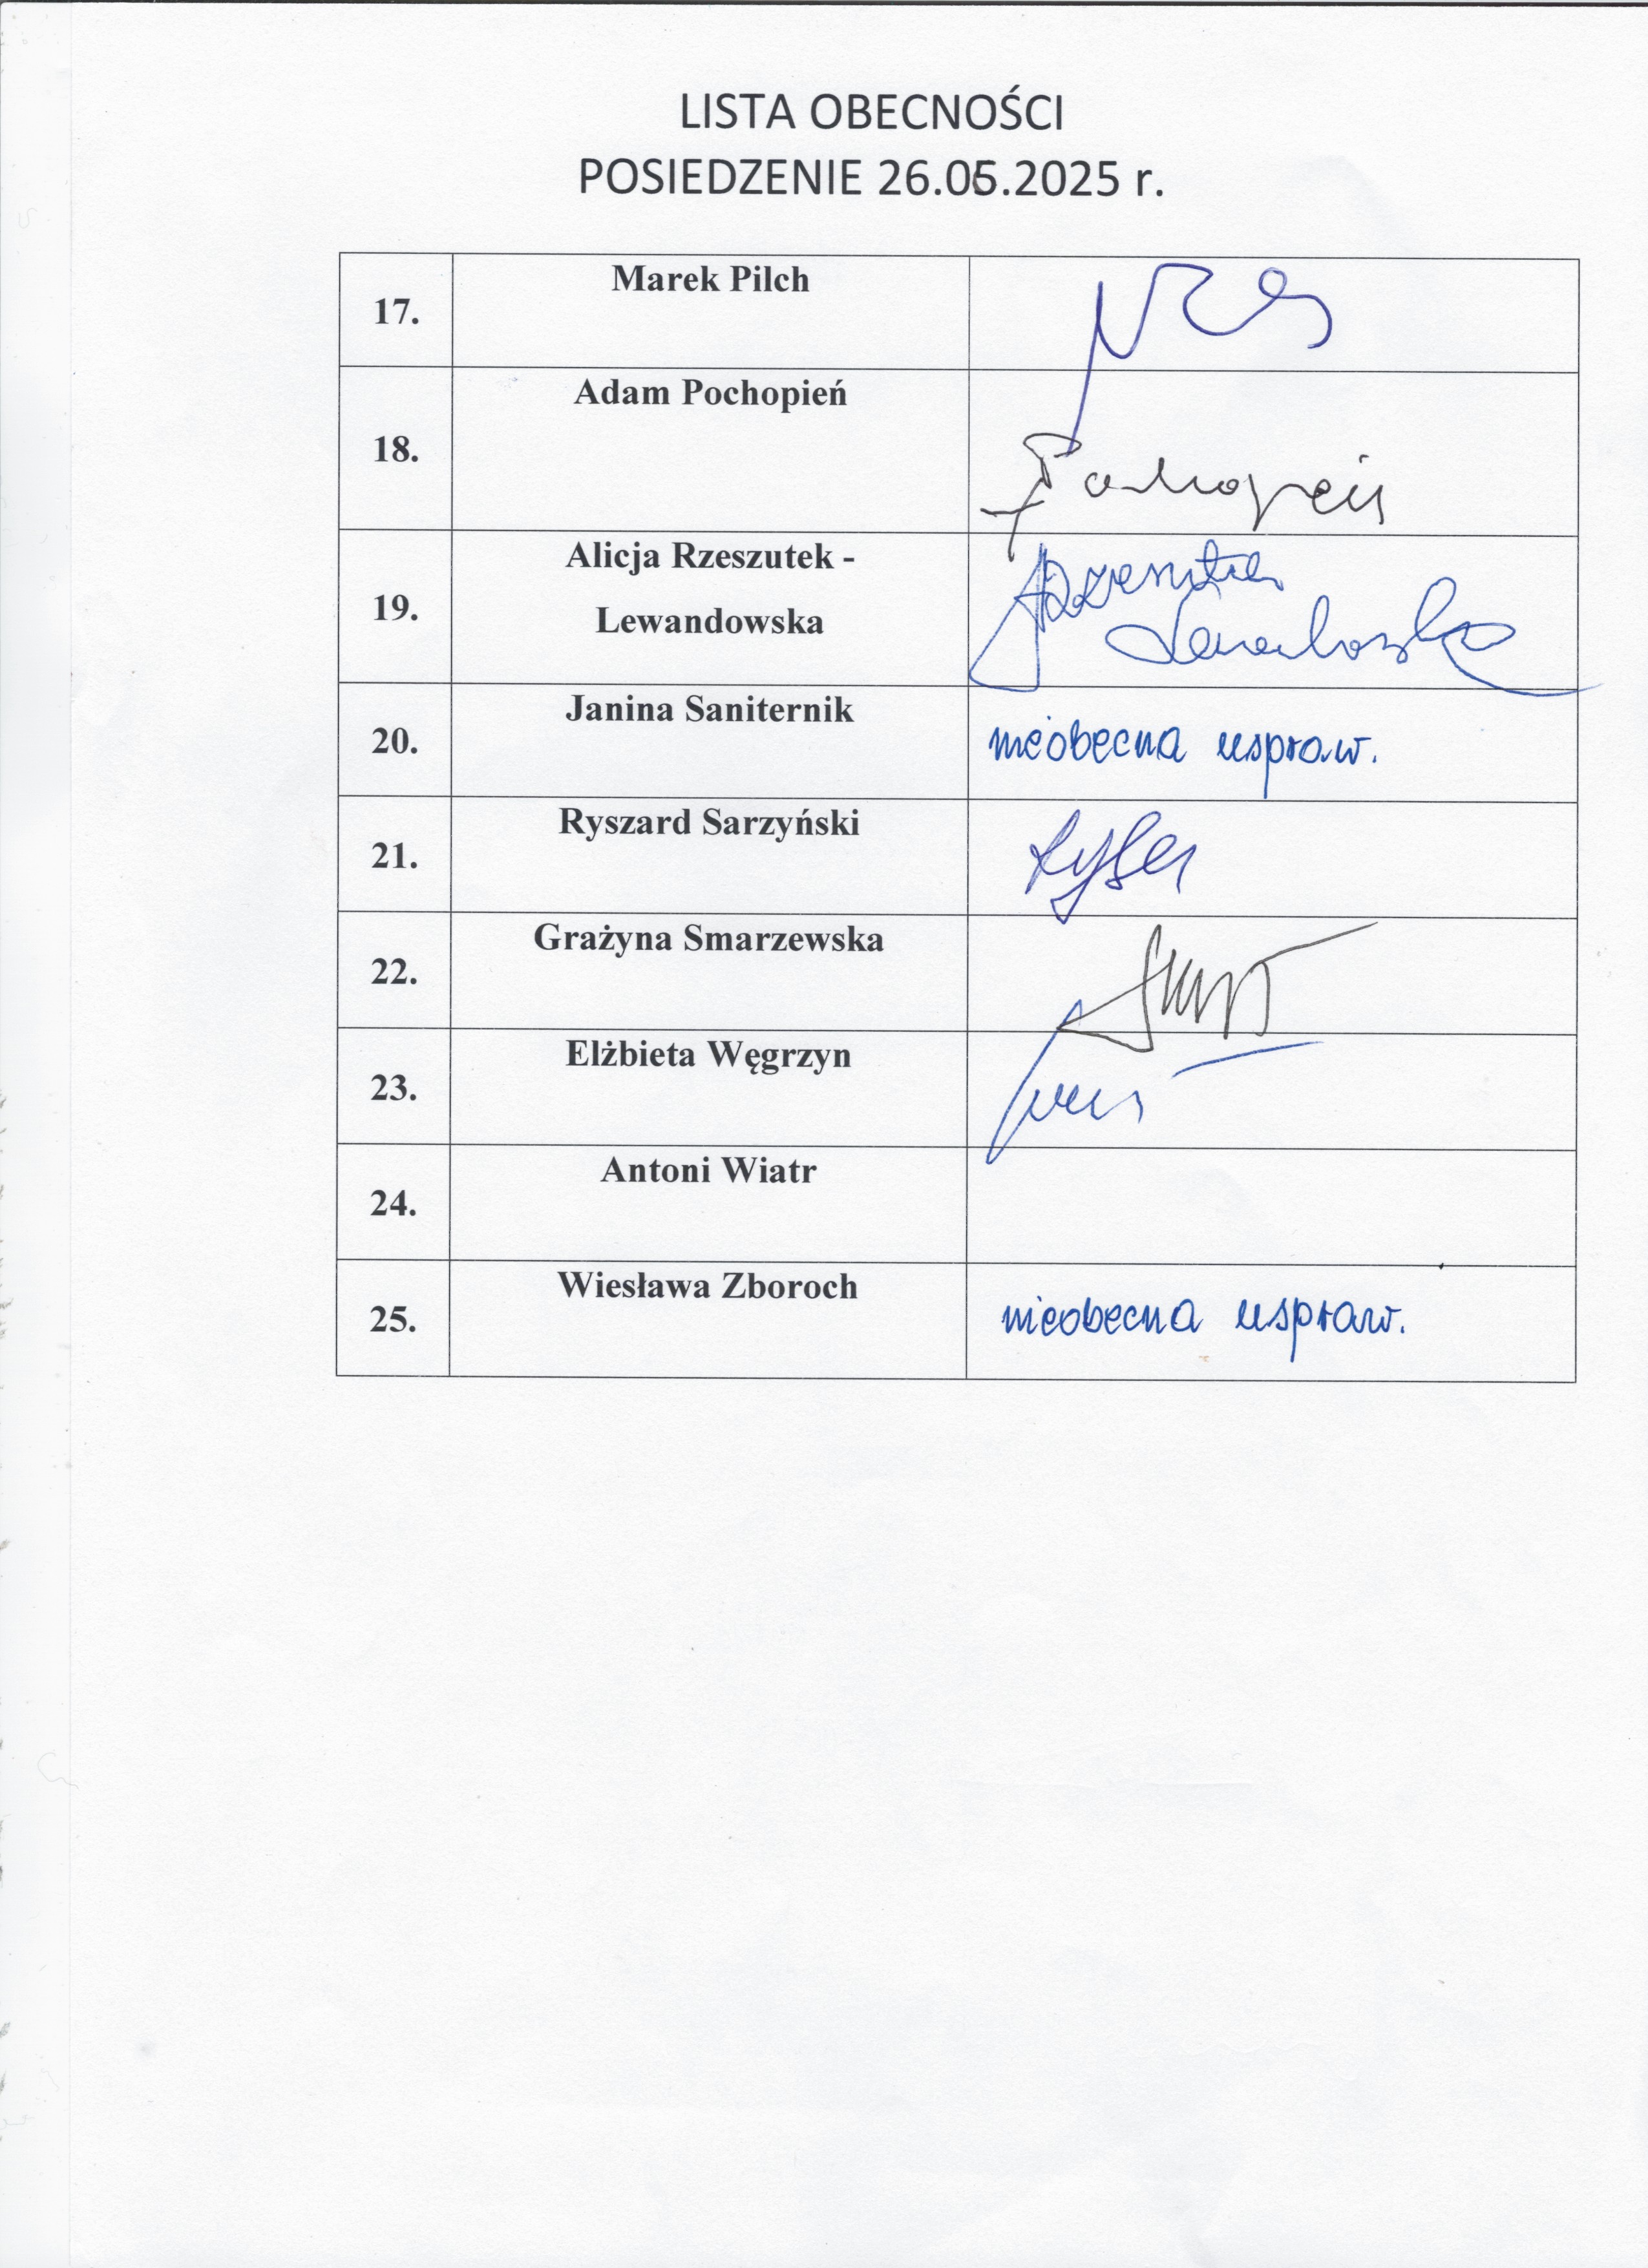 LISTA OBECNOŚCI
POSIEDZENIE 26.05.2025 r.
17. Marek Pilch
18. Adam Pochopień
19. Alicja Rzeszutek -
Lewandowska
20. Janina Saniternik nieobecna uspraw.
21. Ryszard Sarzyński
22. Grażyna Smarzewska
23. Elżbieta Węgrzyn
24. Antoni Wiatr
25. Wiesława Zboroch nieobecna uspraw.